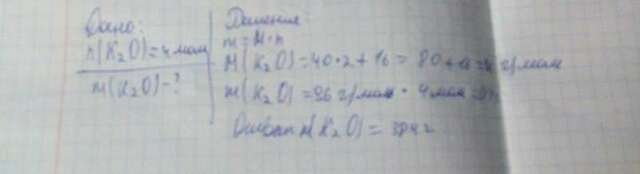 Дано:
n(K₂O)=4 моль
m(K₂O)-?
Решение:
m = M·n
M(K₂O)=40·2+16=80+16=
г/моль
m(K₂O)=96 г/моль · 4 моль =
Ответ: m(K₂O)=384 г